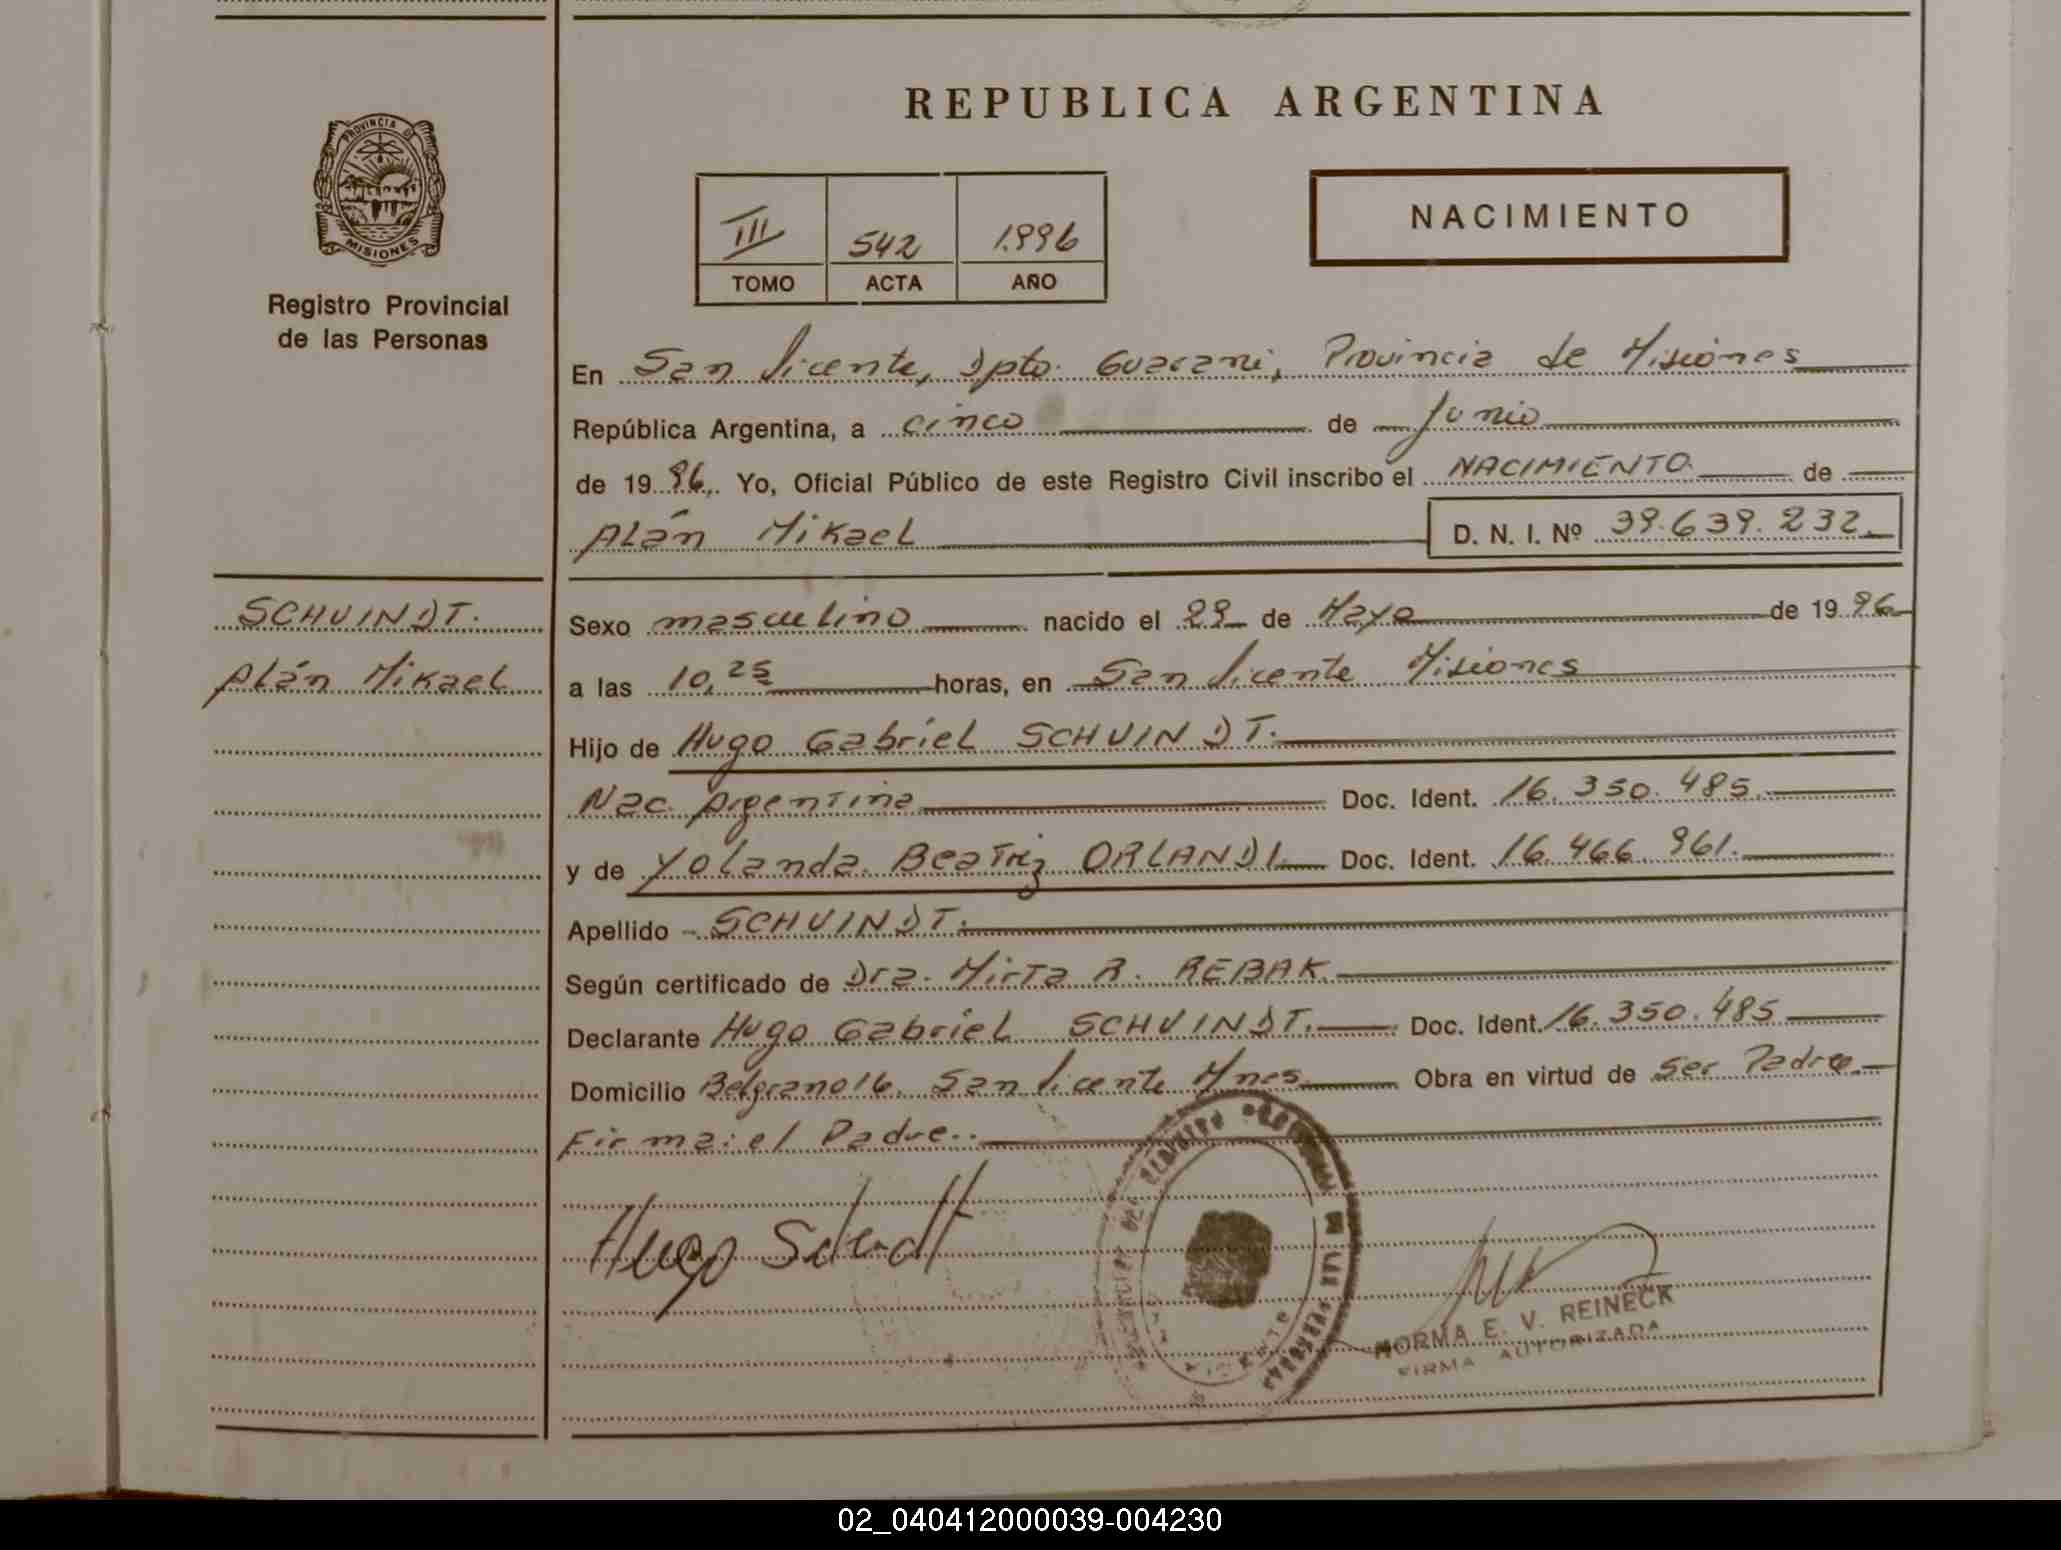 REPUBLICA ARGENTINA
PROVINCIA DE
MISIONES
Registro Provincial
de las Personas
III 542 1.996
TOMO ACTA AÑO
NACIMIENTO
En San Vicente, Dpto. Guarani, Provincia de Misiones
República Argentina, a cinco de Junio
de 19 96. Yo, Oficial Público de este Registro Civil inscribo el NACIMIENTO. de
Alán Mikael D. N. I. Nº 39.639.232.
SCHUINDT.
Alán Mikael
Sexo masculino nacido el 29 de Mayo de 19 96
a las 10,25 horas, en San Vicente Misiones
Hijo de Hugo Gabriel SCHUINDT.
Nac. Argentina Doc. Ident. 16.350.485.
y de Yolanda Beatriz ORLANDI Doc. Ident. 16.466.961.
Apellido SCHUINDT.
Según certificado de Dra. Mirta R. REBAK.
Declarante Hugo Gabriel SCHUINDT. Doc. Ident. 16.350.485
Domicilio Belgrano 16. San Vicente Mnes Obra en virtud de Ser Padre.
Firma: el Padre..
Hugo
NORMA E. V. REINECK
FIRMA AUTORIZADA
02_040412000039-004230